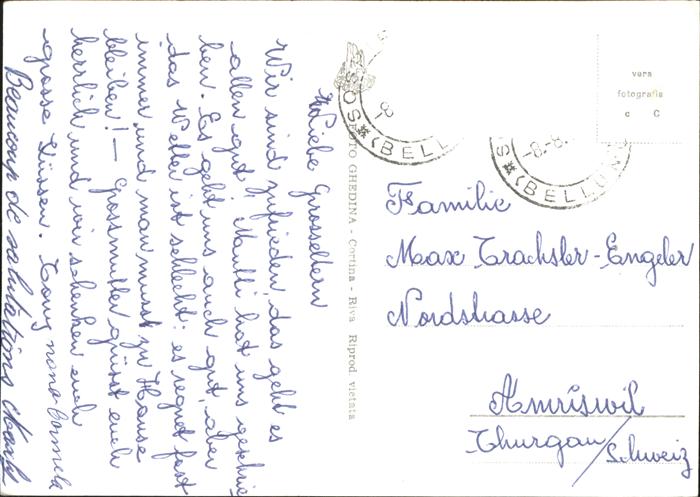 Liebe Grosseltern
Wir sind zufrieden, das geht es
allen gut, Mutti hat uns geschrie
ben. Es geht uns auch gut, aber
das Wetter ist schlecht: es regnet fast
immer und man musst zu Hause
bleiben! — Grossmutter grüsst euch
herrlich und wir schenken euch
grosse Küssen. Tony nona Carmela
Beaucoup de salutations
TO GHEDINA - Cortina - Riva Riprod. vietata
OSS * (BELL
-8
S * (BELLUN
-8-8.
vera
fotografia
Familie
Max Trachsler-Engeler
Nordstrasse
Amriswil
Thurgau/Schweiz